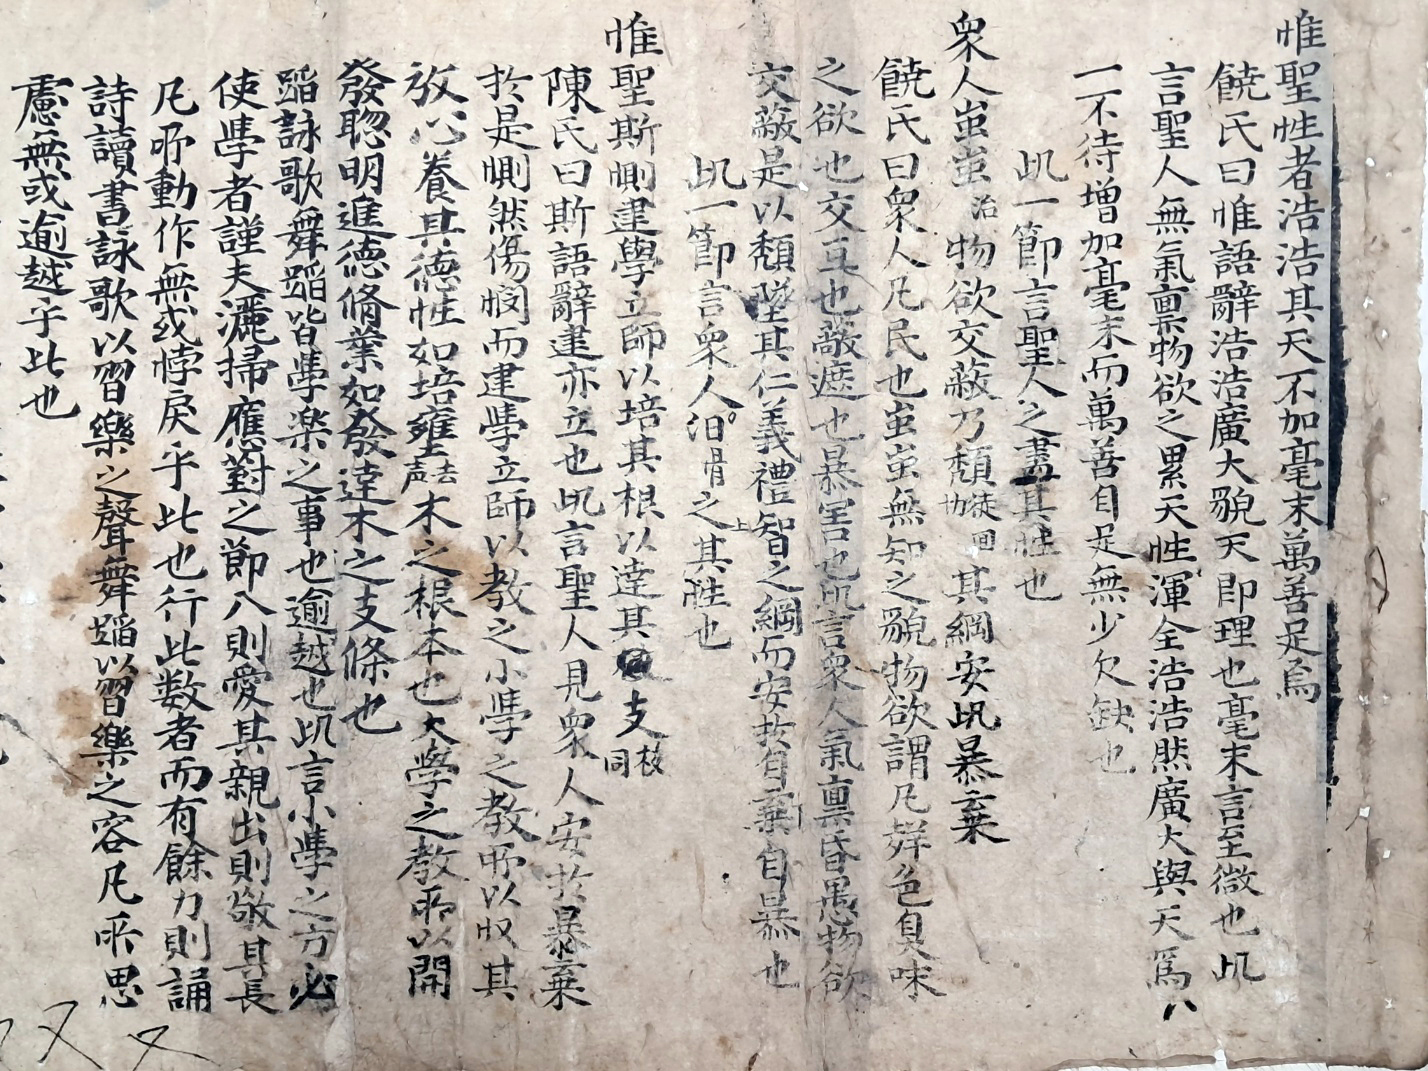 惟聖性者浩浩其天不加毫末萬善足焉
饒氏曰惟語辭浩浩廣大貌天即理也毫末言至微也此
言聖人無氣稟物欲之累天性渾全浩浩然廣大與天爲
一不待增加毫末而萬善自足無少欠缺也
此一節言聖人之盡其性也
衆人蚩蚩治物欲交蔽乃頹徒回協其綱安此暴棄
饒氏曰衆人凡民也蚩蚩無知之貌物欲謂凡声色臭味
之欲也交互也蔽遮也暴害也此言衆人氣稟昏愚物欲
交蔽是以頹墜其仁義禮智之綱而安於自棄自暴也
此一節言衆人汨骨之其性也
惟聖斯惻建學立師以培其根以達其支枝同
陳氏曰斯語辭建亦立也此言聖人見衆人安於暴棄
於是惻然傷憫而建學立師以教之小學之教所以収其
放心養其德性如培壅去声木之根本也大學之教所以開
發聰明進德脩業如發達木之支條也
蹈詠歌舞蹈皆學楽之事也逾越也此言小學之方必
使學者謹夫灑掃應對之節入則愛其親出則敬其長
凡所動作無或悖戾乎此也行此数者而有餘力則誦
詩讀書詠歌以習樂之聲舞蹈以習樂之容凡所思
慮無或逾越乎此也